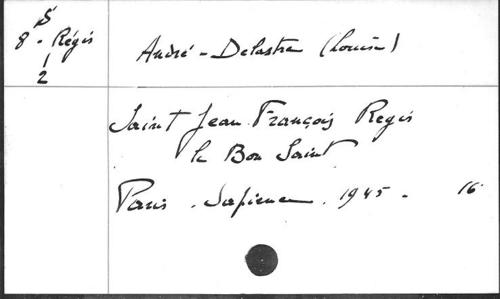 S
8 - Régis
1
2
André - Delastre (Louise)
Saint Jean François Regis
le Bon Saint
Paris . Sapience . 1945 - 16